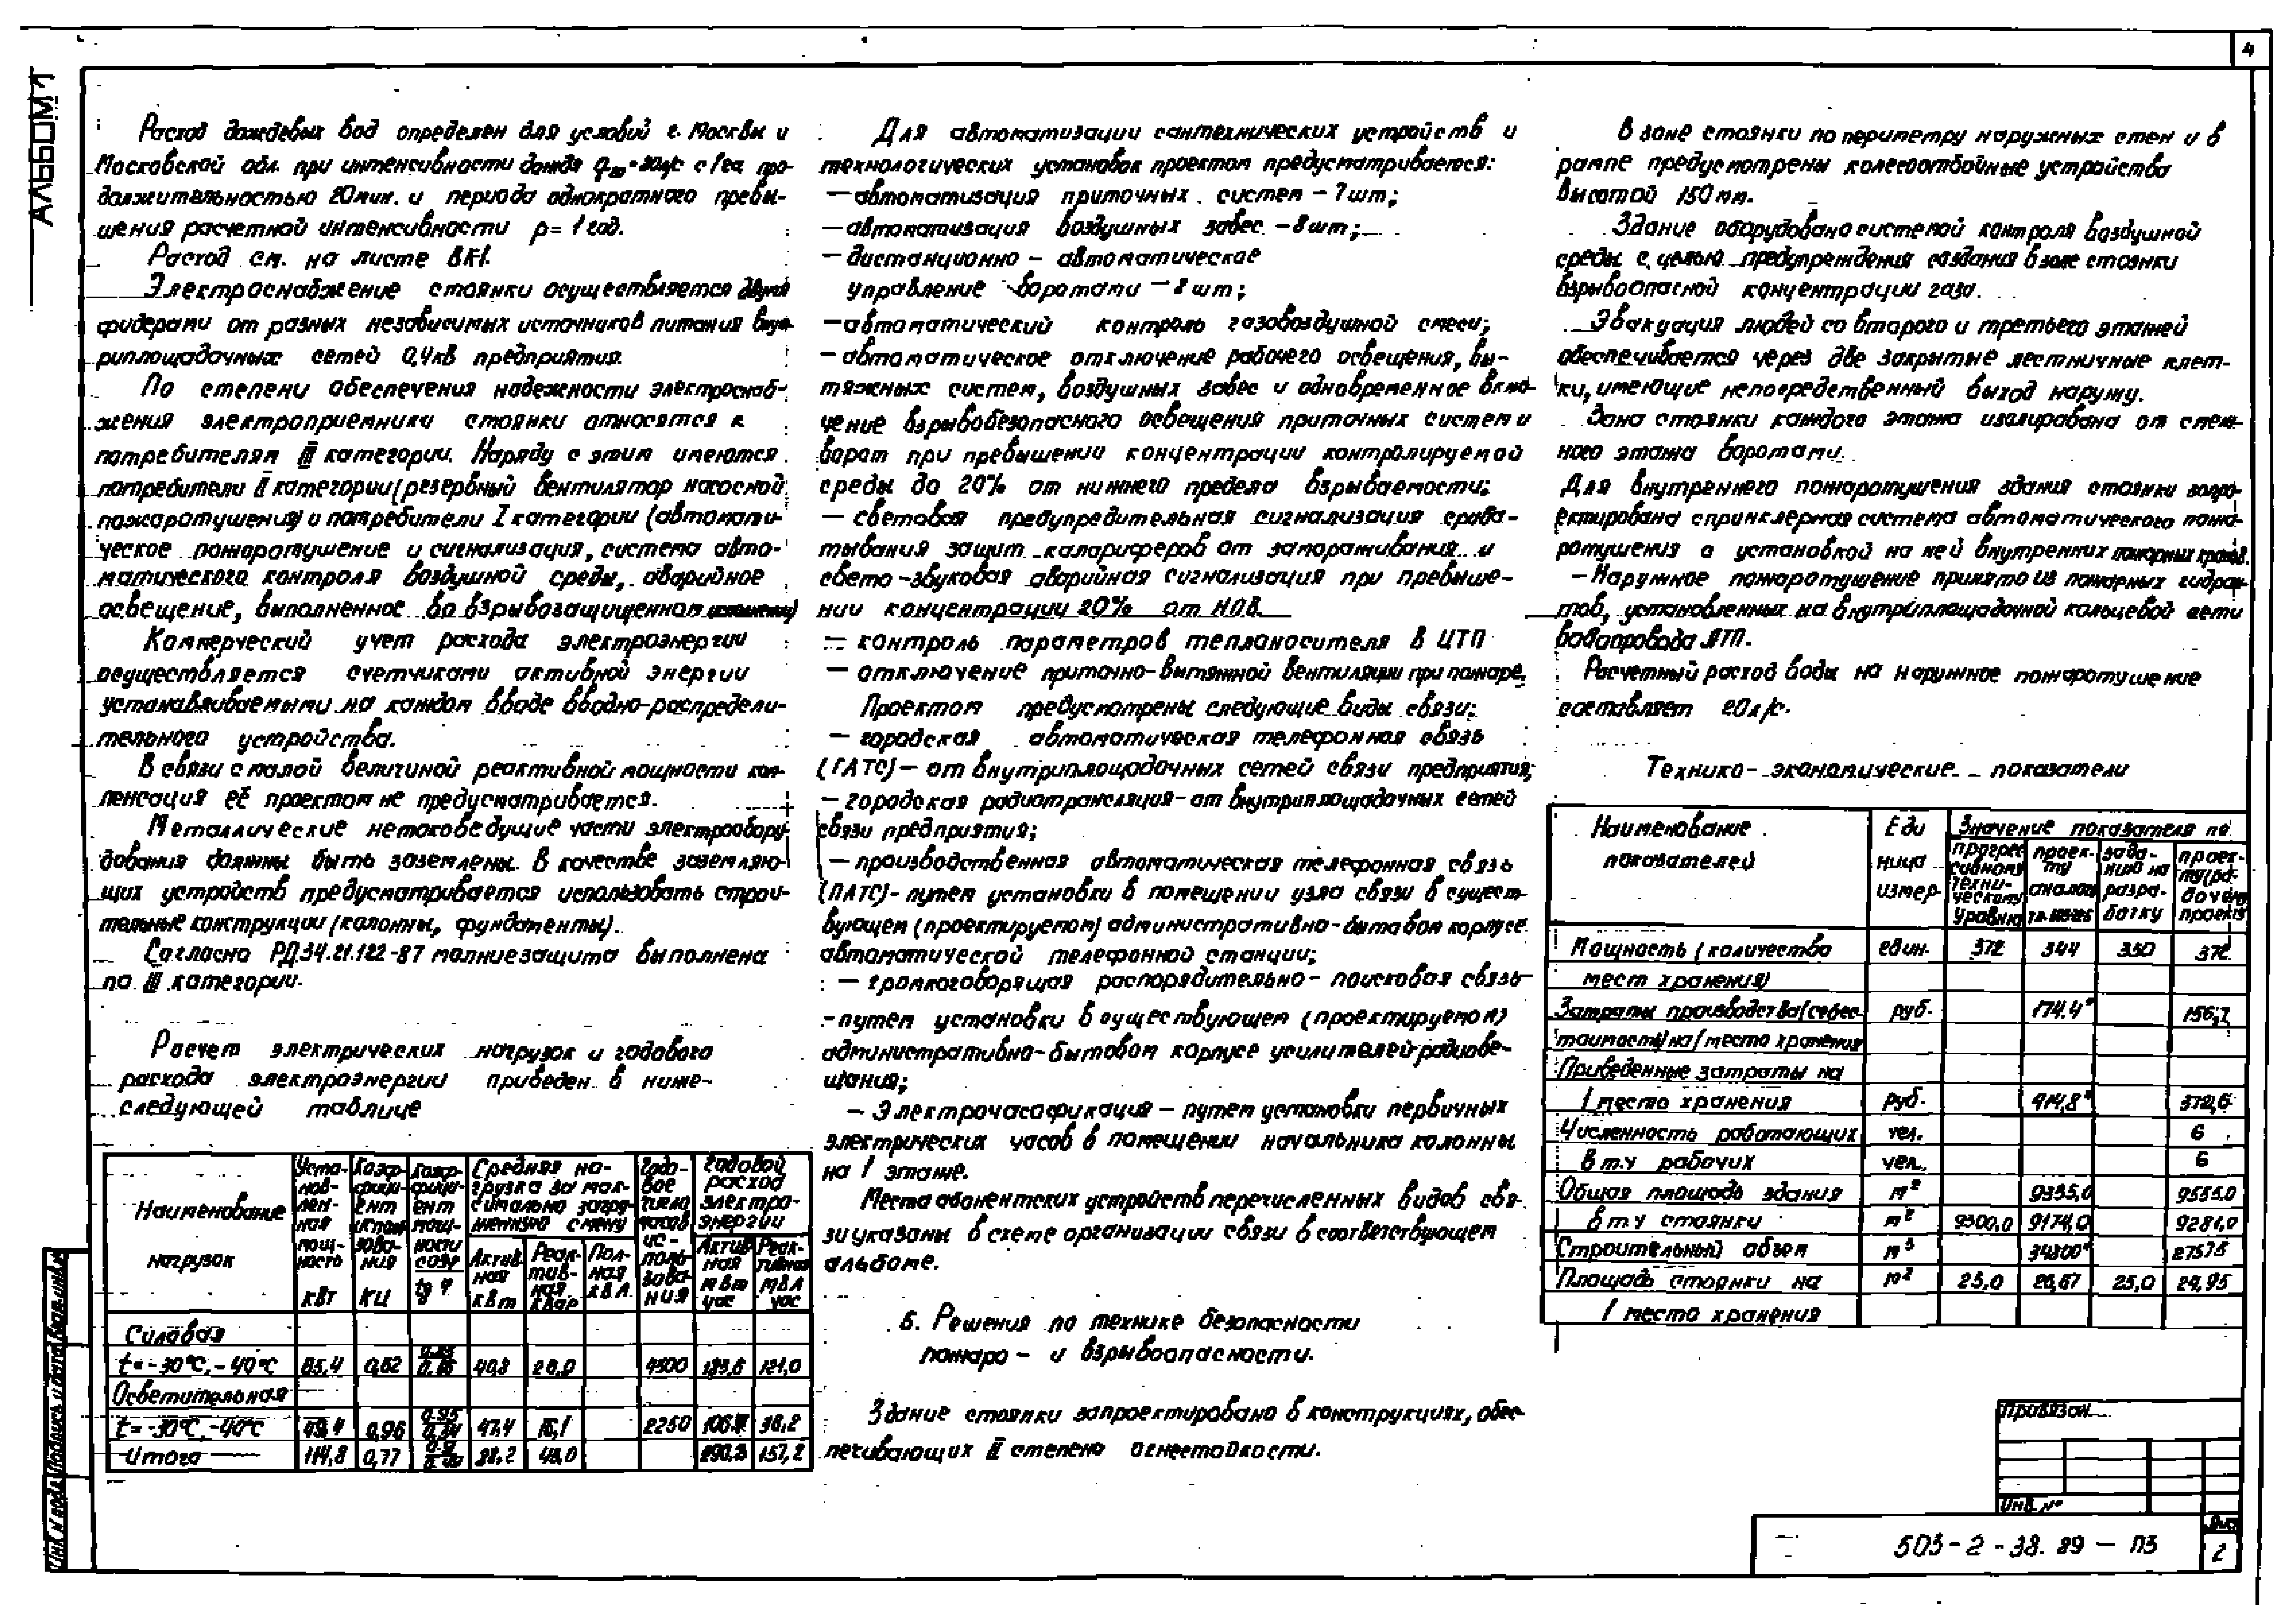 4
АЛЬБОМ 1
Расход дождевых вод определен для условий г. Москвы и
Московской обл. при интенсивности дождя с/га про-
должительностью 20 мин. и периода однократного превы-
шения расчетной интенсивности p = 1 год.
Расход см. на листе ВК-1.
Электроснабжение стоянки осуществляется двумя
фидерами от разных независимых источников питания внут-
риплощадочных сетей 0,4кВ предприятия.
По степени обеспечения надежности электроснаб-
жения электроприемники стоянки относятся к
потребителям III категории. Наряду с этим имеются
потребители II категории (резервный вентилятор насосной
пожаротушения) и потребители I категории (автомати-
ческое пожаротушение и сигнализация, система авто-
матического контроля воздушной среды, аварийное
освещение, выполненное во взрывозащищенном
Коммерческий учет расхода электроэнергии
осуществляется счетчиками активной энергии
устанавливаемыми на каждом вводе вводно-распредели-
тельного устройства.
В связи с малой величиной реактивной мощности ком-
пенсация её проектом не предусматривается.
Металлические нетоковедущие части электрообору-
дования должны быть заземлены. В качестве заземляю-
щих устройств предусматривается использовать строи-
тельные конструкции (колонны, фундаменты).
Согласно РД34.21.122-87 молниезащита выполнена
по III категории.
Расчет электрических нагрузок и годового
расхода электроэнергии приведен в ниже-
следующей таблице
Наименование нагрузок
Уста-нов-лен-ная мощ-ность кВт
Коэф-фици-ент исполь-зова-ния Ки
Коэф-фици-ент мощ-ности cosφ tg φ
Средняя на-грузка за мак-симально загру-женную смену
Актив-ная кВт
Реак-тив-ная кВар
Пол-ная кВА
Годо-вое число часов ис-поль-зова-ния
Годовой расход электро-энергии
Актив-ная мВт час
Реак-тивная мВА час
Силовая
t = -30°С, -40°С 65,4 0,62 40,8 26,0 4500 183,6 121,0
Осветительная
t = -30°С, -40°С 49,4 0,96 47,4 16,1 2250 36,2
Итого 114,8 0,77 157,2
Для автоматизации сантехнических устройств и
технологических установок проектом предусматривается:
— автоматизация приточных систем - 7 шт;
— автоматизация воздушных завес - 8 шт;
— дистанционно - автоматическое
управление воротами — 8 шт;
— автоматический контроль газовоздушной смеси;
— автоматическое отключение рабочего освещения, вы-
тяжных систем, воздушных завес и одновременное вклю-
чение взрывобезопасного освещения приточных систем и
ворот при превышении концентрации контролируемой
среды до 20% от нижнего предела взрываемости;
— световая предупредительная сигнализация сраба-
тывания защит калориферов от замораживания и
свето-звуковая аварийная сигнализация при превыше-
нии концентрации 20% от Н.П.В.
— контроль параметров теплоносителя в ЦТП
— отключение приточно-вытяжной вентиляции при пожаре.
Проектом предусмотрены следующие виды связи:
— городская автоматическая телефонная связь
(ГАТС) — от внутриплощадочных сетей связи предприятия;
— городская радиотрансляция - от внутриплощадочных сетей
связи предприятия;
— производственная автоматическая телефонная связь
(ПАТС) - путем установки в помещении узла связи в сущест-
вующем (проектируемом) административно-бытовом корпусе
автоматической телефонной станции;
— громкоговорящая распорядительно-поисковая связь
- путем установки в существующем (проектируемом)
административно-бытовом корпусе усилителей радиове-
щания;
— Электрочасофикация — путем установки первичных
электрических часов в помещении начальника колонны
на 1 этаже.
Места абонентских устройств перечисленных видов свя-
зи указаны в схеме организации связи в соответствующем
альбоме.
6. Решения по технике безопасности
пожаро - и взрывоопасности.
Здание стоянки запроектировано в конструкциях, обес-
печивающих II степень огнестойкости.
В зоне стоянки по периметру наружных стен и в
рампе предусмотрены колесоотбойные устройства
высотой 150 мм.
Здание оборудовано системой контроля воздушной
среды с целью предупреждения создания в зоне стоянки
взрывоопасной концентрации газа.
Эвакуация людей со второго и третьего этажей
обеспечивается через две закрытые лестничные клет-
ки, имеющие непосредственный выход наружу.
Зона стоянки каждого этажа изолирована от смеж-
ного этажа воротами.
Для внутреннего пожаротушения здания стоянки запро-
ектирована спринклерная система автоматического пожа-
ротушения с установкой на ней внутренних пожарных кранов.
— Наружное пожаротушение принято из пожарных гидран-
тов, установленных на внутриплощадочной кольцевой сети
водопровода АТП.
Расчетный расход воды на наружное пожаротушение
составляет 20 л/с.
Технико-экономические показатели
Наименование показателей
Еди ница измер.
Значение показателя по
прогрес-сивному техни-ческому уровню
проек-ту аналогу
зада-нию на разра-ботку
проек-ту (ра-бочему проекту)
Мощность (количество един. 372 344 350 372
мест хранения)
Затраты производства (себес- руб. 174,4* 156,7
тоимость) на 1 место хранения
Приведенные затраты на
1 место хранения руб. 414,8* 372,6
Численность работающих чел. 6
в т.ч рабочих чел. 6
Общая площадь здания м² 9355,0 9555.0
в т.ч стоянки м² 9300,0 9174,0 9281,0
Строительный объем м³ 34300* 27575
Площадь стоянки на м² 25,0 26,67 25,0 24,95
1 место хранения
Привязан
Инв. №
503-2-38.89 — ПЗ
Лист
2
Инв. № подл. Подпись и дата Взам. инв. №